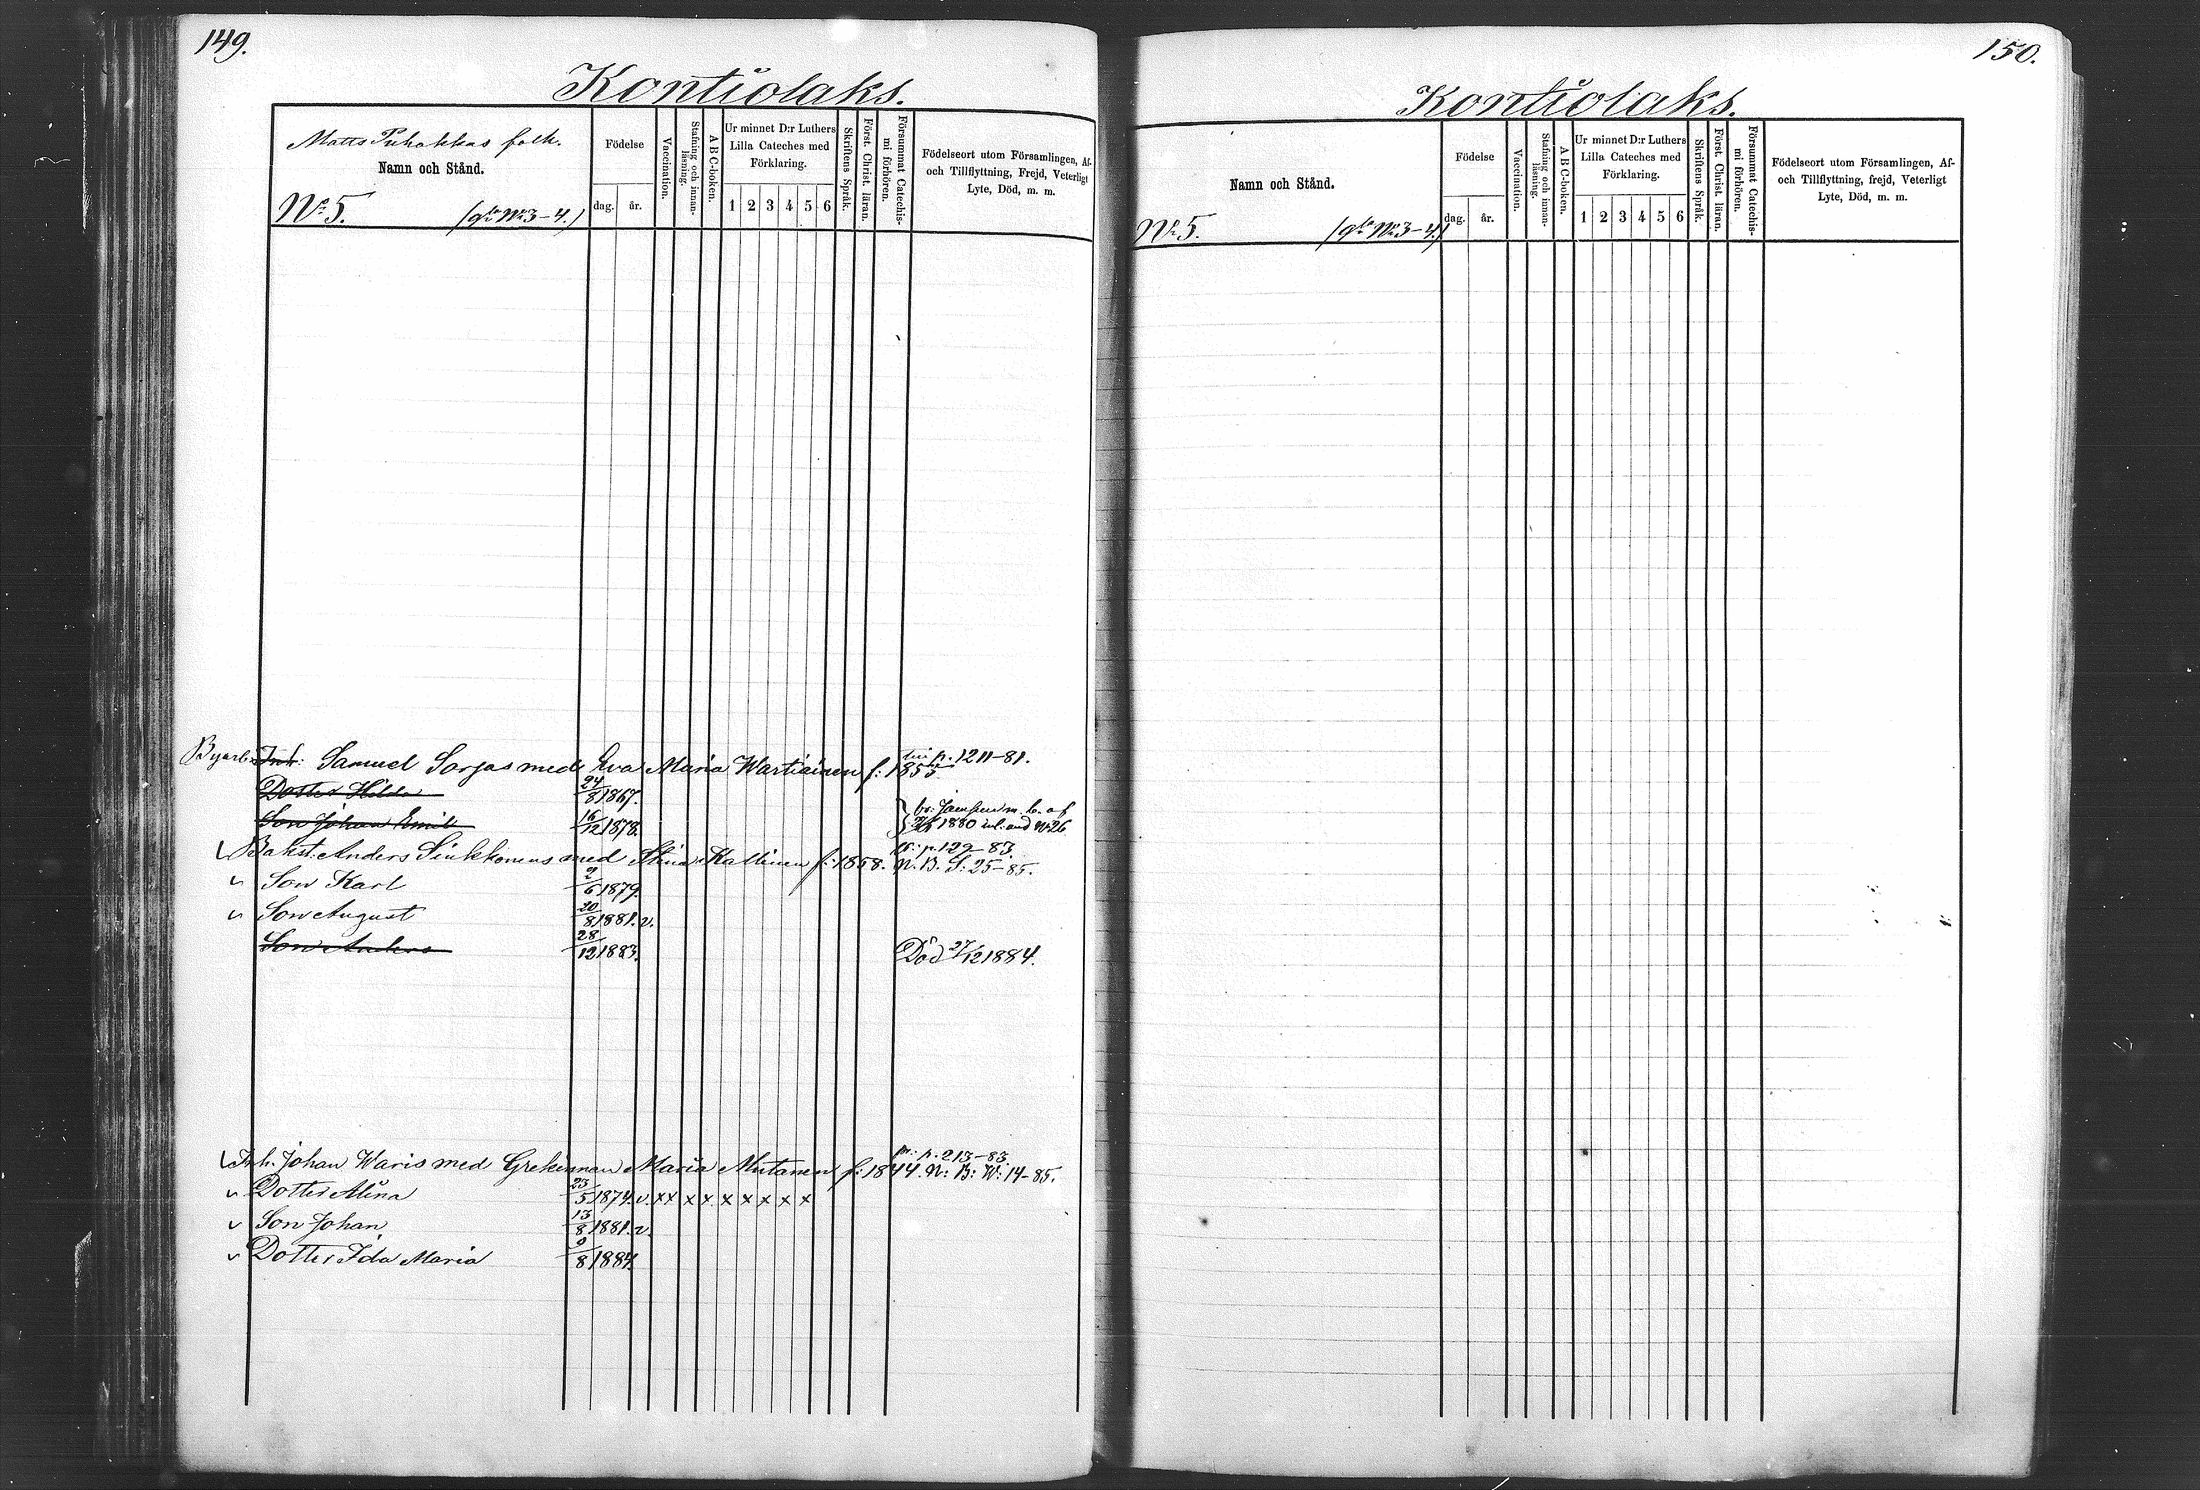 149.
Kontiolaks.
Matts Puhakkas folk.
Namn och Stånd.
No 5. (gla No 3-4.)
Födelse
dag. år.
Vaccination.
Stafning och innan-läsning.
A B C-boken.
Ur minnet D:r Luthers
Lilla Cateches med
Förklaring.
1 2 3 4 5 6
Skriftens Språk.
Först. Christ. läran.
Försummat Catechis-
mi förhören.
Födelseort utom Församlingen, Af-
och Tillflyttning, Frejd, Veterligt
Lyte, Död, m. m.
Inh: Samuel Sarjas med Eva Maria Wartiainen f: 1855 p. 1211-81.
Dotter Hilda 24/8 1867.
Son Johan Emil 16/12 1878. 1880 No 26
Bakst. Anders Sinkkonens med Stina Kallinen f: 1858. p. 129-83
N. B. S: 25-85.
Son Karl 2/6 1879.
Son August 20/8 1881. v.
Son Anders 28/12 1883. Död 27/12 1884.
Inh. Johan Waris med Grekinnan Maria Mutanen f: 1844. p. 213-83
N: B: W: 14-85.
Dotter Alina 23/5 1874. v. x x x x x x x x x
Son Johan 13/8 1881. v.
Dotter Ida Maria 9/8 1884.
150.
Kontiolaks.
Namn och Stånd.
No 5. (gla No 3-4)
Födelse
dag. år.
Vaccination.
Stafning och innan-läsning.
A B C-boken.
Ur minnet D:r Luthers
Lilla Cateches med
Förklaring.
1 2 3 4 5 6
Skriftens Språk.
Först. Christ. läran.
Försummat Catechis-
mi förhören.
Födelseort utom Församlingen, Af-
och Tillflyttning, frejd, Veterligt
Lyte, Död, m. m.